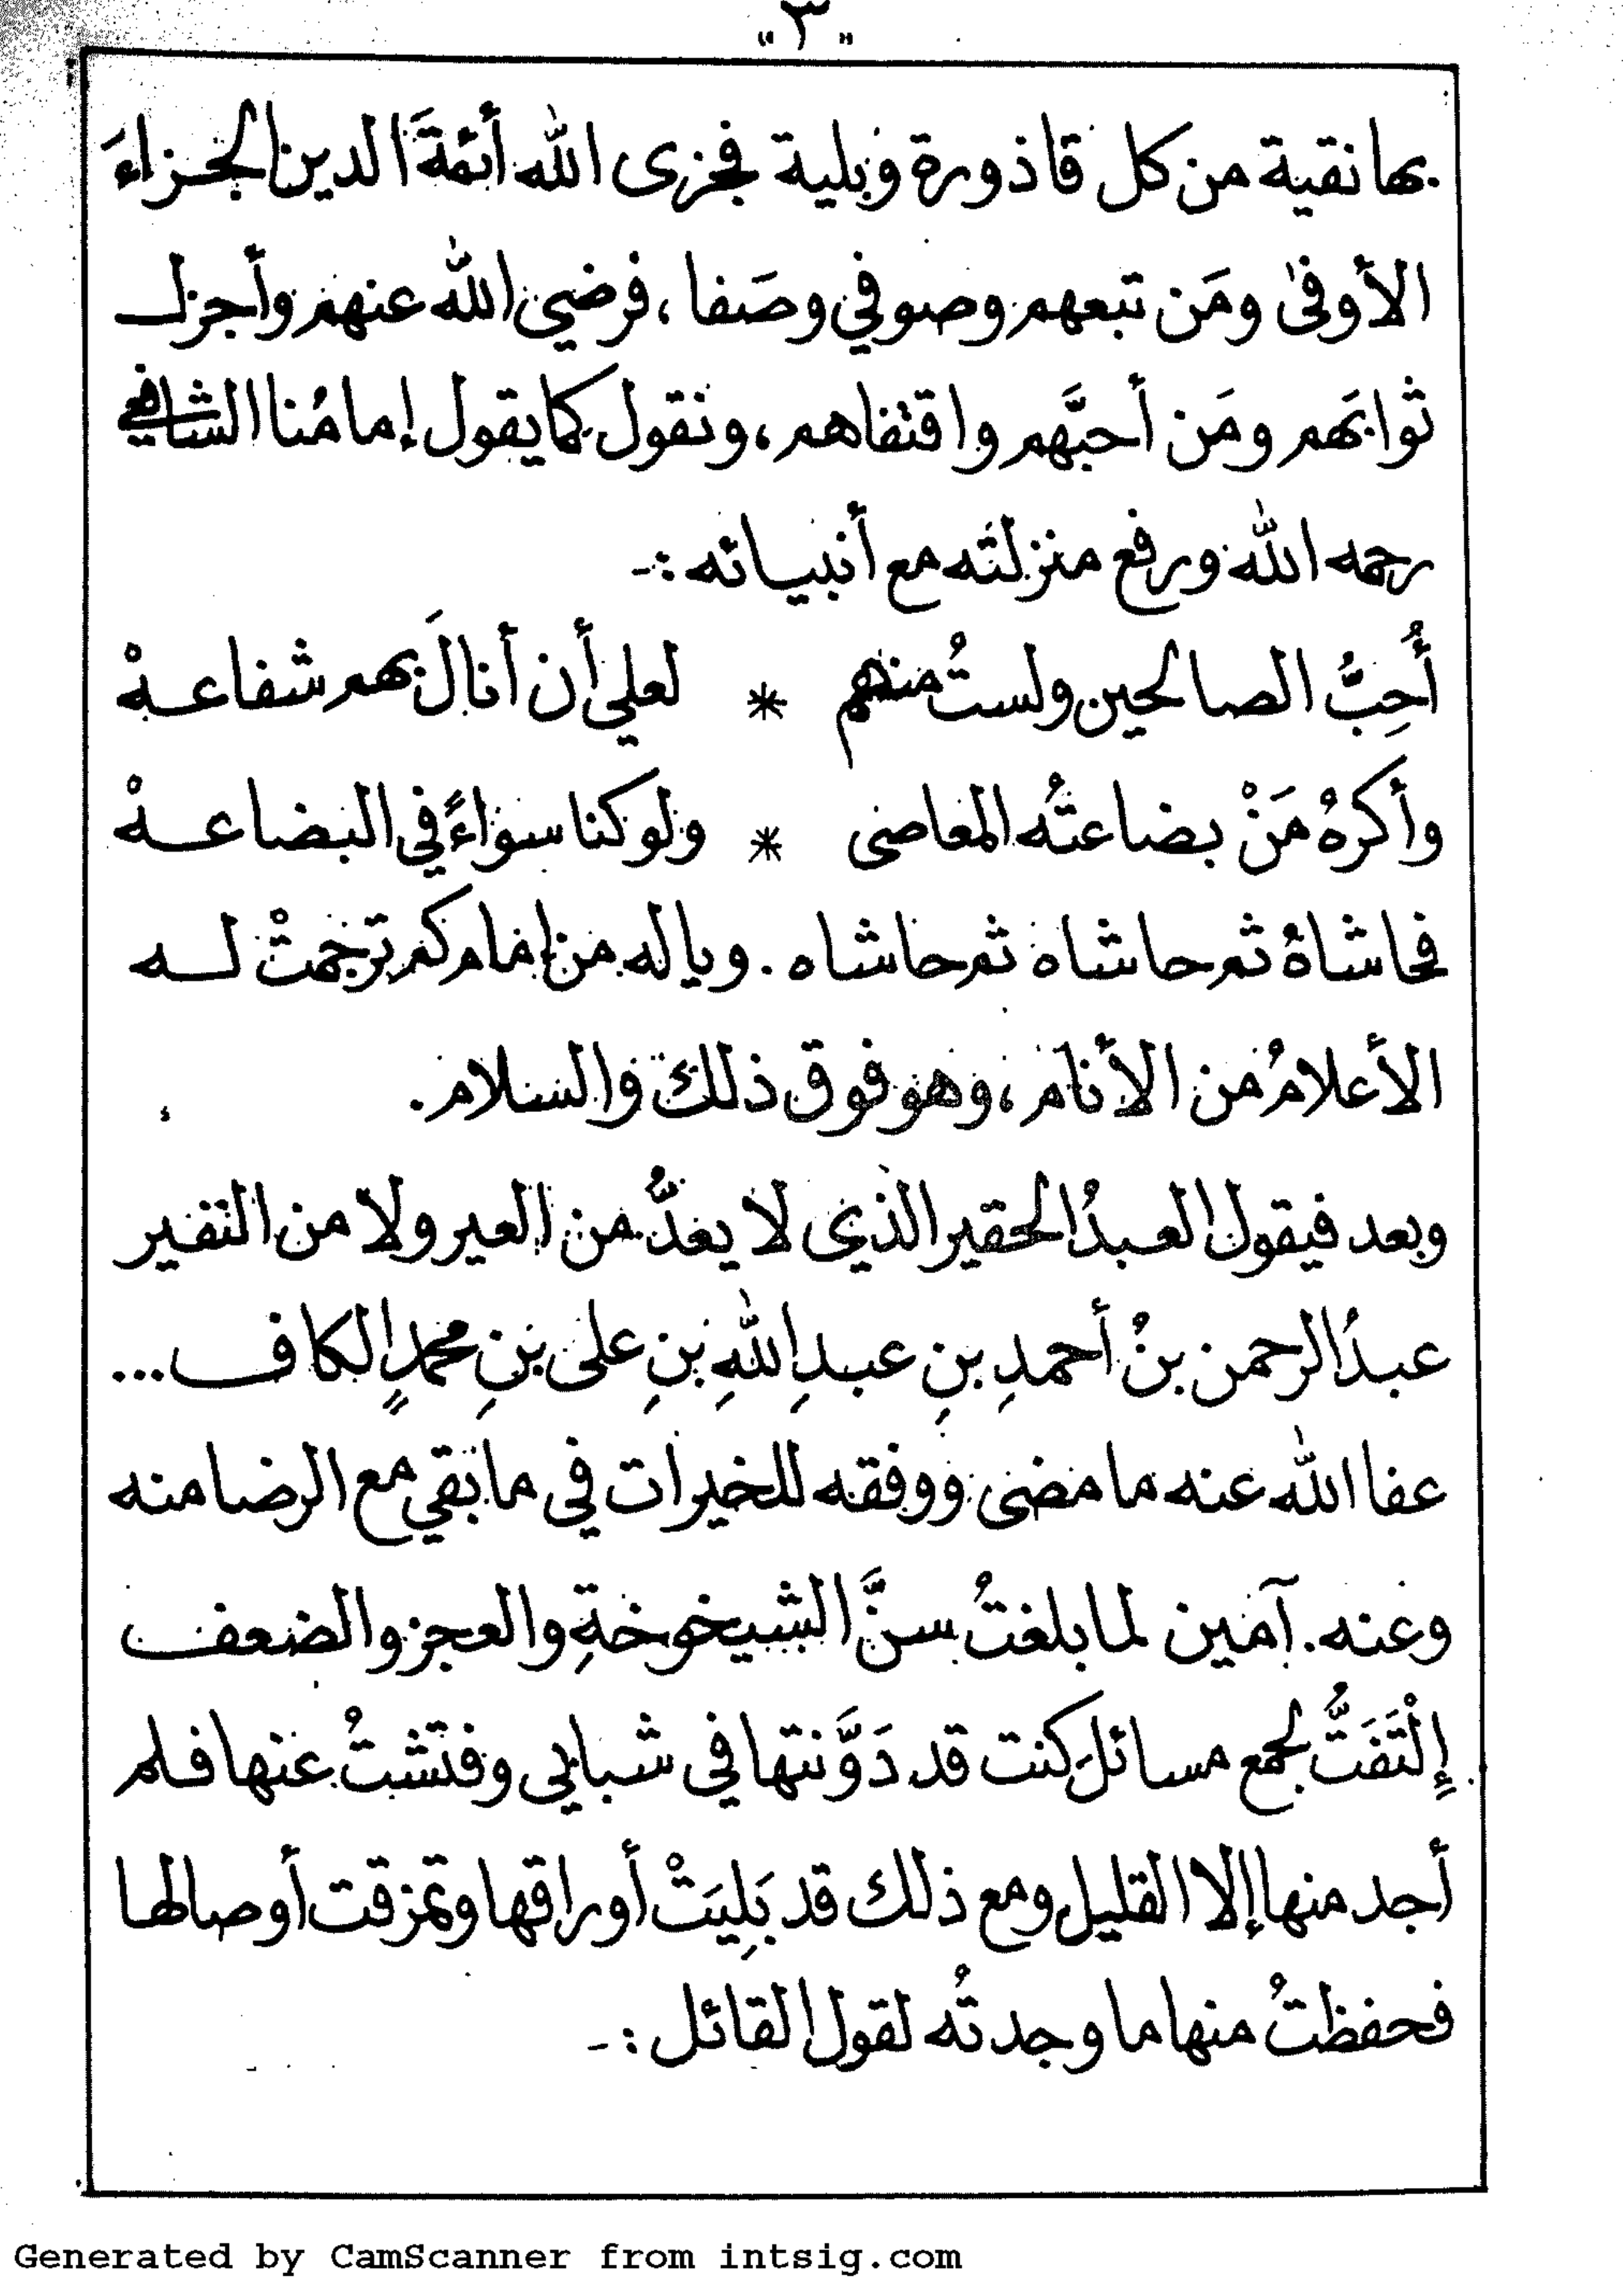 «٣»
بها نقية من كل قاذورة وبلية فجزى الله أئمةَ الدين الجزاءَ
الأوفى ومَن تبعهم وصوفي وصَفا، فرضي الله عنهم وأجزل
ثوابَهم ومَن أحبَّهم واقتفاهم، ونقول كما يقول إمامُنا الشافعي
رحمه الله ورفع منزلتَه مع أنبيائه :-
أُحِبُّ الصالحين ولستُ منهم * لعلي أن أنالَ بهم شفاعهْ
وأكرهُ مَنْ بضاعتُه المعاصي * ولو كنا سواءً في البضاعهْ
فحاشاهُ ثم حاشاه ثم حاشاه . وياله من إمام كم ترجمتْ له
الأعلامُ من الأنام، وهو فوق ذلك والسلام.
وبعد فيقول العبدُ الحقير الذي لا يعدُّ من العير ولا من النفير
عبدُ الرحمن بنُ أحمدِ بنِ عبدِ اللهِ بنِ على بنِ محمدٍ الكاف ...
عفا الله عنه ما مضى ووفقه للخيرات في ما بقي مع الرضا منه
وعنه. آمين لما بلغتُ سنَّ الشيخوخةِ والعجز والضعف
إِلْتَفَتُّ لجمع مسائل كنت قد دَوَّنتها في شبابي وفتشتُ عنها فلم
أجد منها إلا القليل ومع ذلك قد بَلِيَتْ أوراقها وتمزقت أوصالها
فحفظتُ منها ما وجدتُه لقول القائل :-
Generated by CamScanner from intsig.com